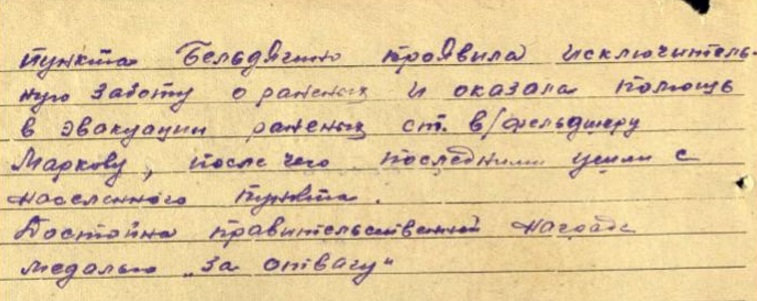 пункта Бельдягино проявила исключитель-
ную заботу о раненых и оказала помощь
в эвакуации раненых ст. в/фельдшеру
Маркову, после чего последними ушли с
населенного пункта.
Достойна правительственной награде
медалью „За отвагу"